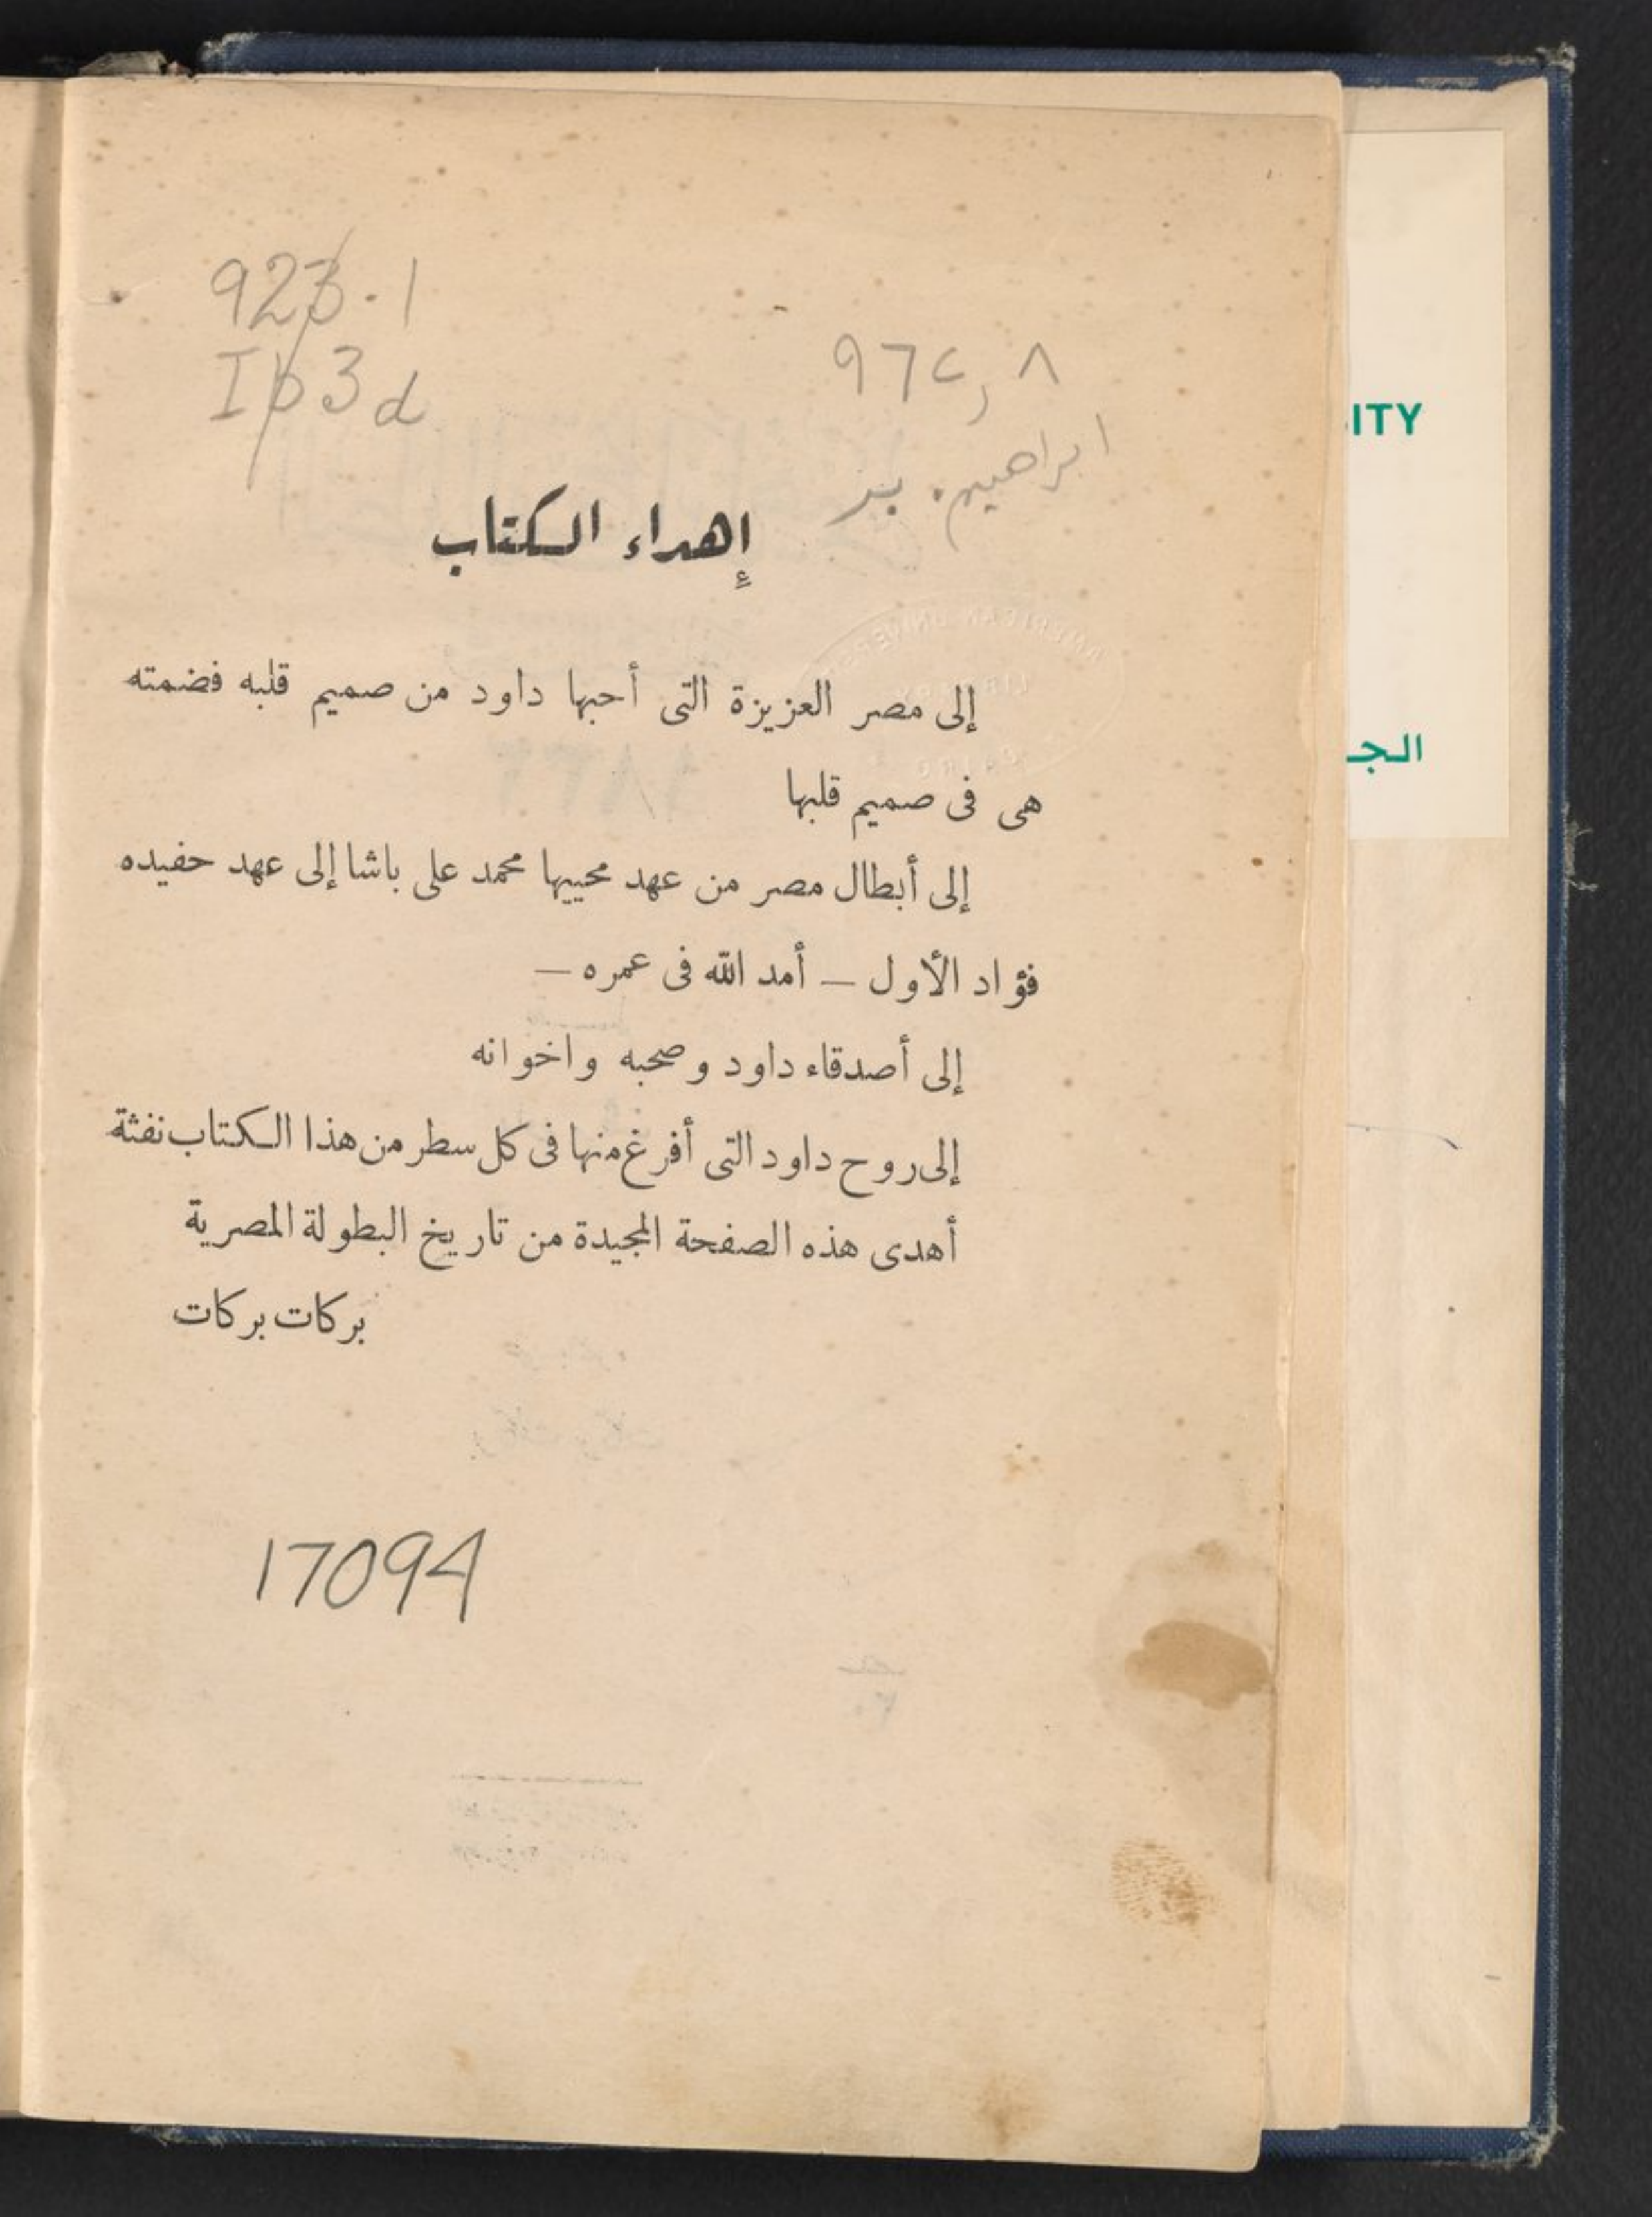 923.1
Ib3d
٩٦٢,٨
ابراهيم. بر
إهداء الكتاب
إلى مصر العزيزة التى أحبها داود من صميم قلبه فضمته
هى فى صميم قلبها
إلى أبطال مصر من عهد محييها محمد على باشا إلى عهد حفيده
فؤاد الأول — أمد الله فى عمره —
إلى أصدقاء داود وصحبه واخوانه
إلى روح داود التى أفرغ منها فى كل سطر من هذا الكتاب نفثة
أهدى هذه الصفحة المجيدة من تاريخ البطولة المصرية
بركات بركات
17094
ITY
الجـ